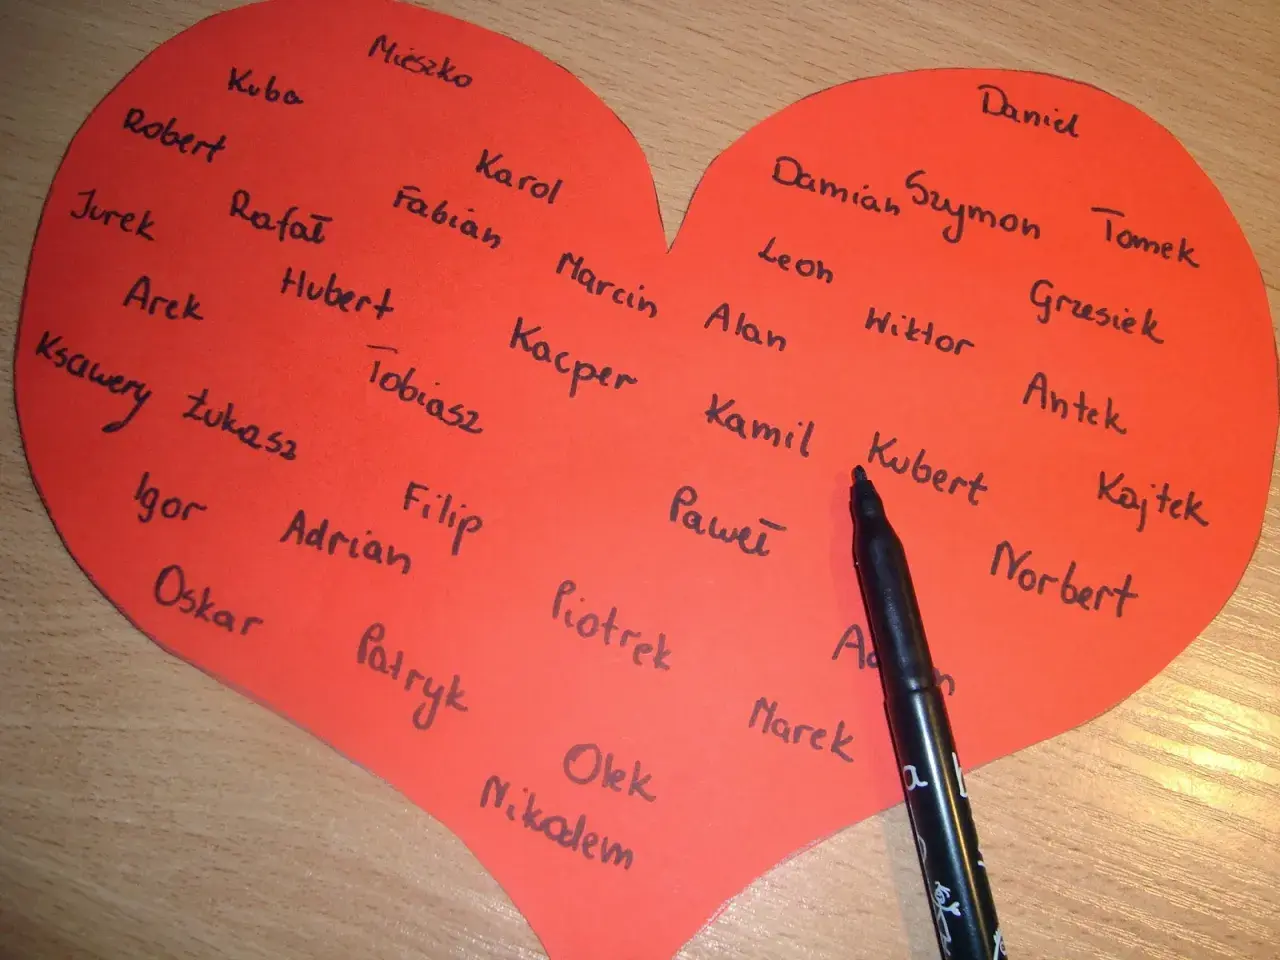 Mieszko
Kuba
Robert
Karol
Jurek
Rafał
Fabian
Marcin
Arek
Hubert
Kacper
Ksawery
Łukasz
Tobiasz
Igor
Adrian
Filip
Oskar
Patryk
Piotrek
Olek
Nikodem
Daniel
Damian
Szymon
Tomek
Leon
Grzesiek
Alan
Wiktor
Antek
Kamil
Kubert
Kajtek
Paweł
Norbert
Marek